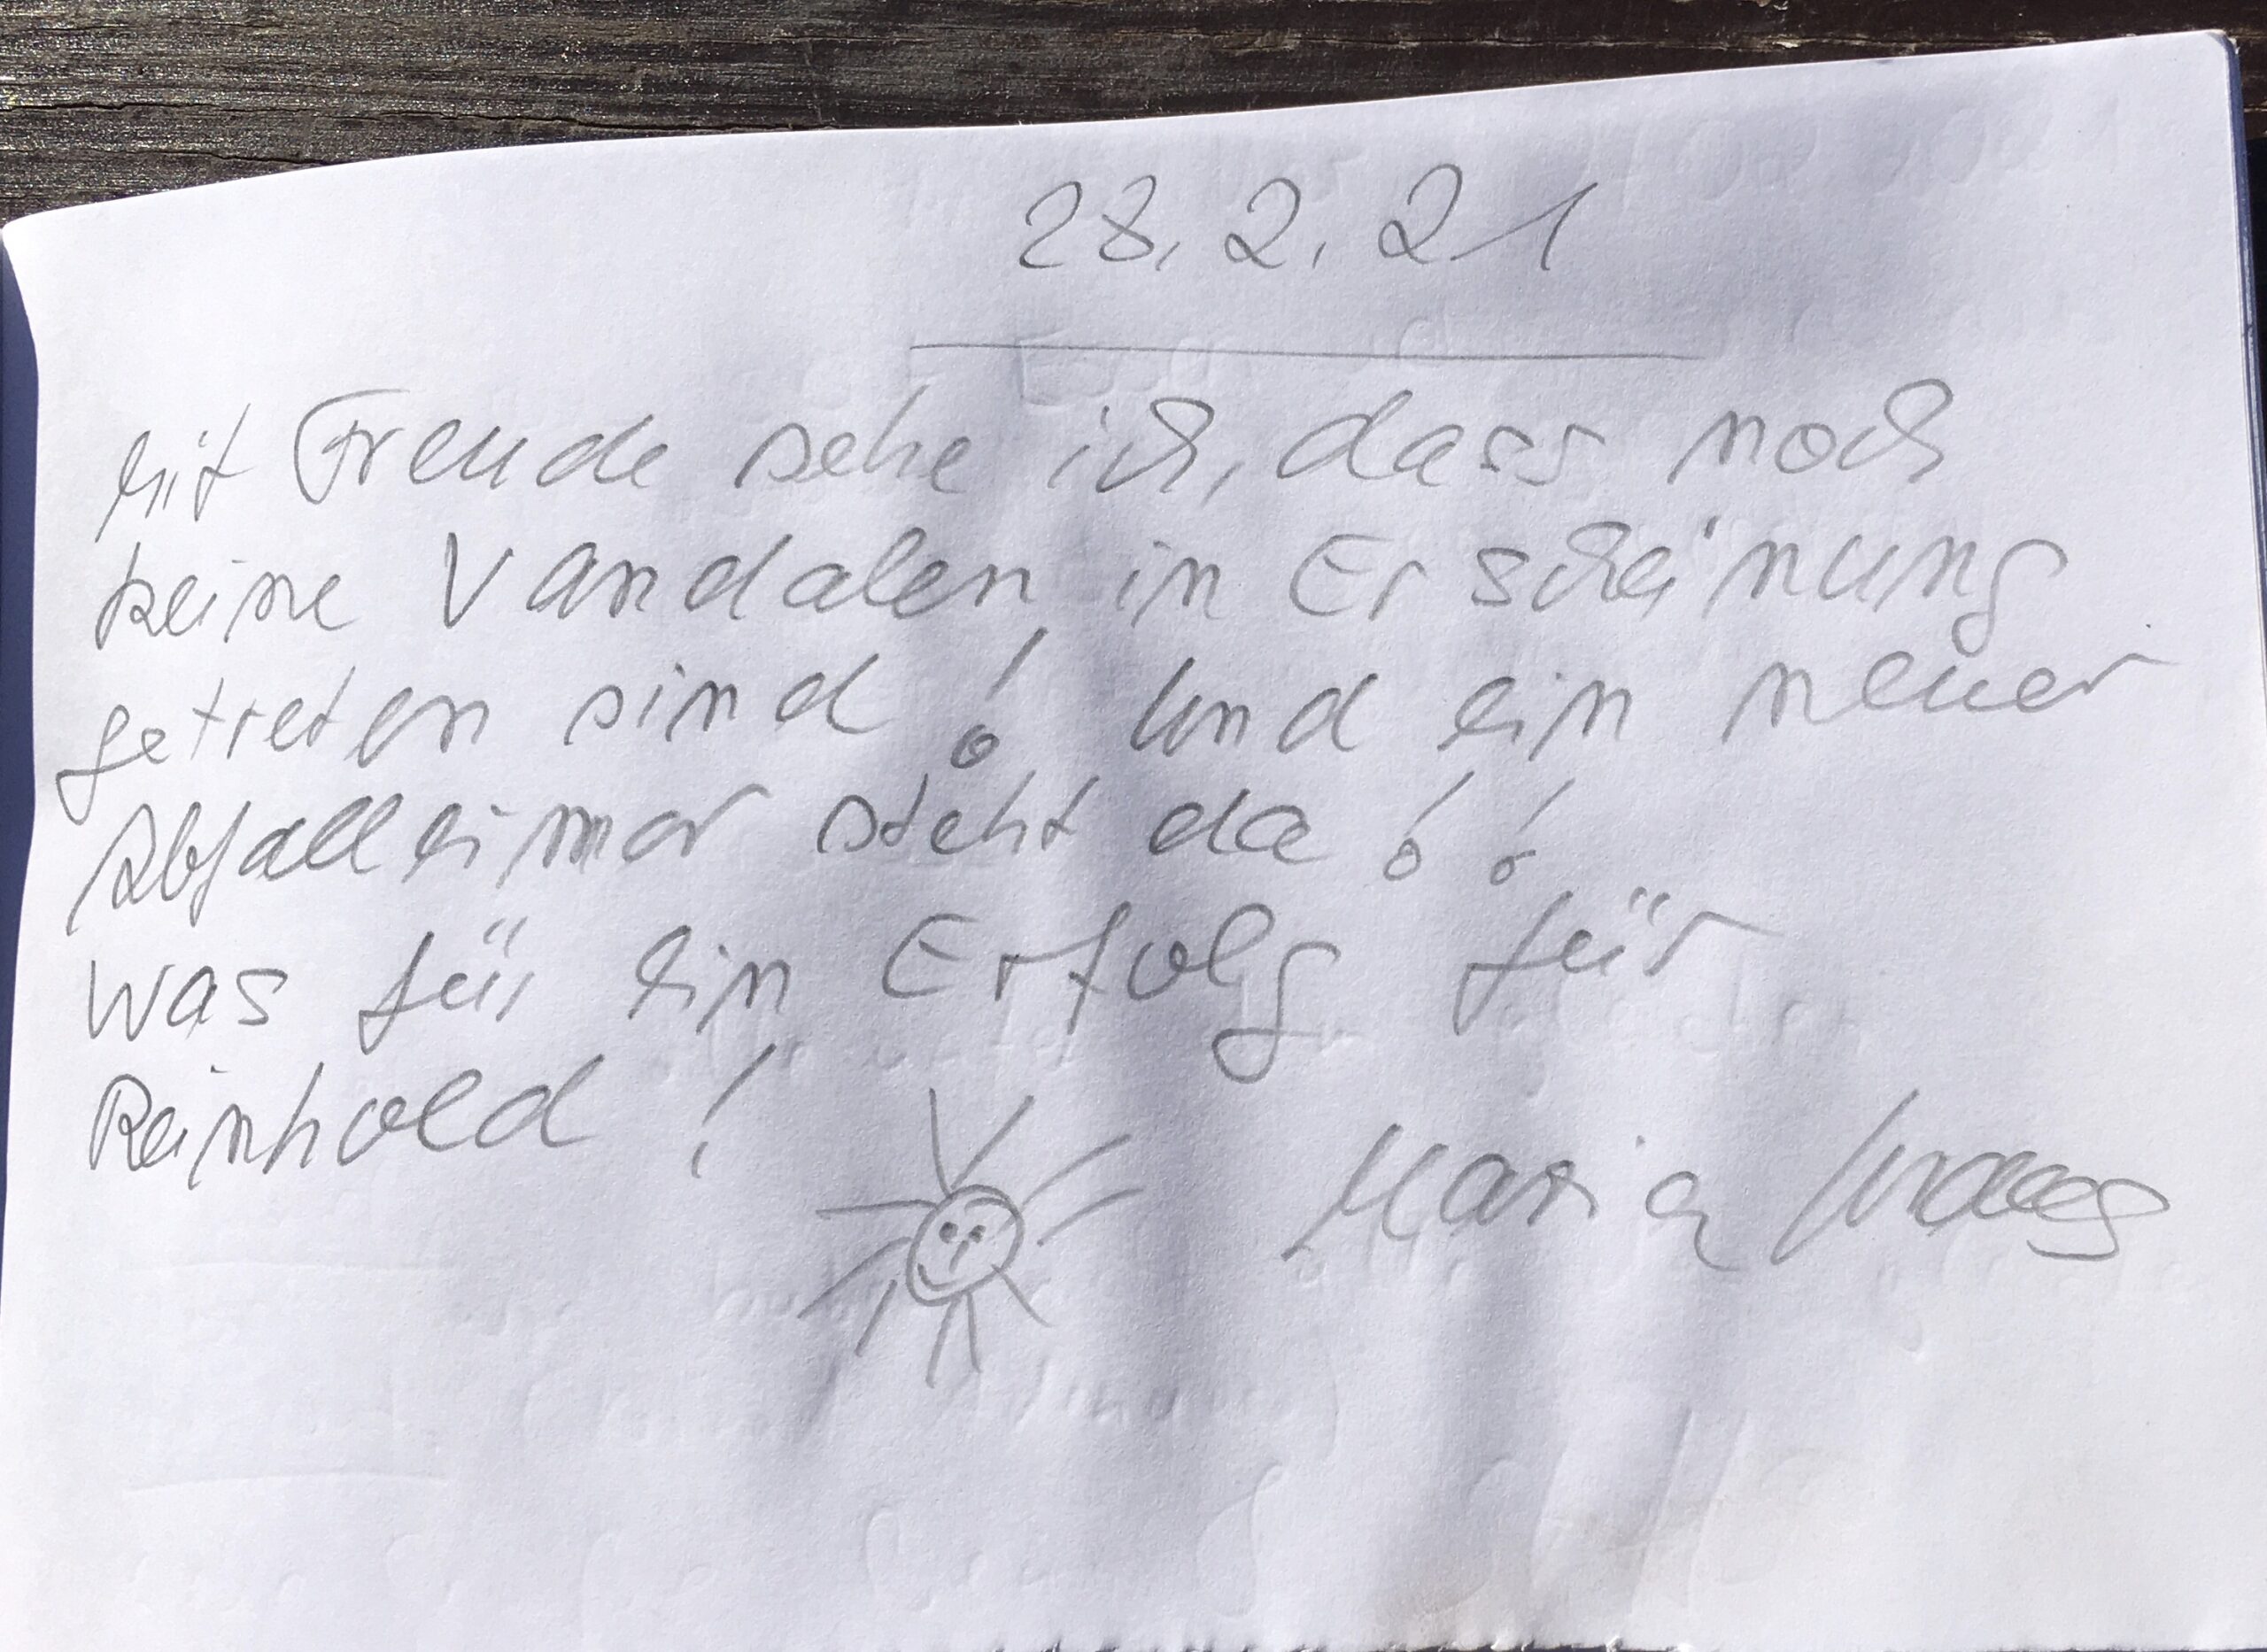 28.2.21
Mit Freude sehe ich, dass noch
keine Vandalen in Erscheinung
getreten sind! Und ein neuer
Abfalleimer steht da!!
Was für ein Erfolg für
Reinhold!
Maria